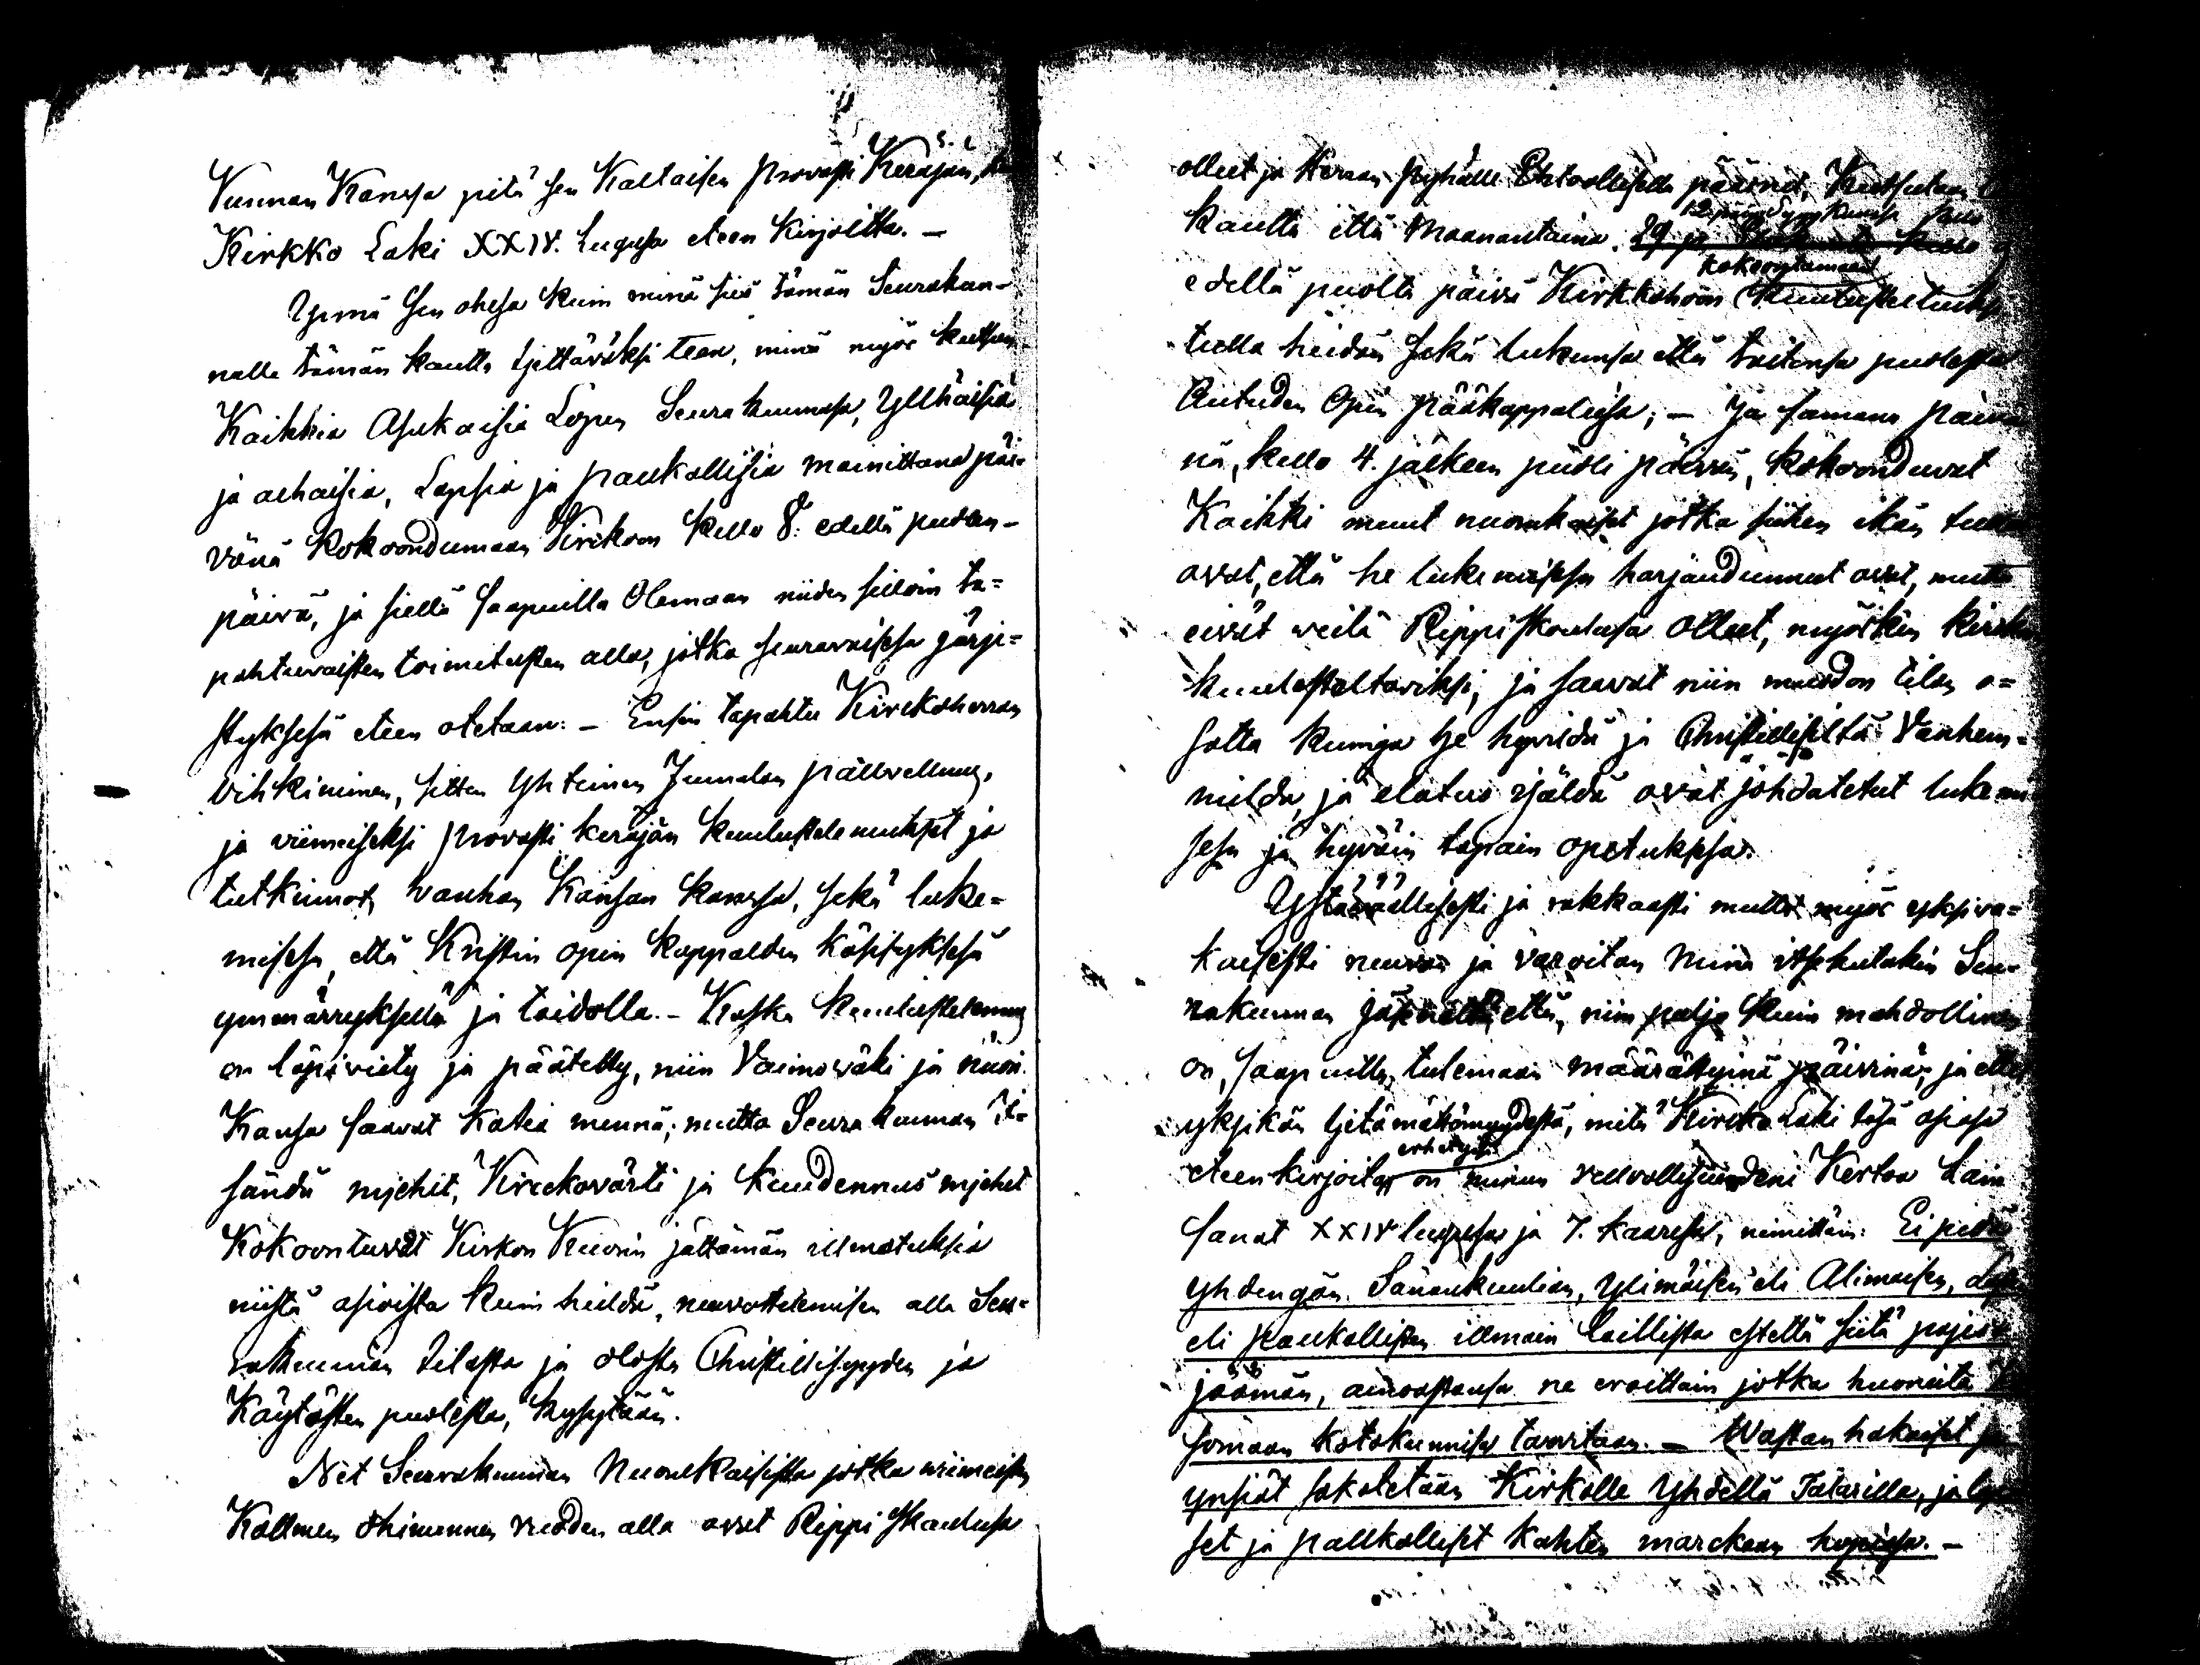 Kunnan Kanssa pitä sen Kaltaisen Provasti Keräjän,
Kirkko Laki XXIV. Lugusa eteen kirjoitta. —
Ynnä sen ohesa kuin minä siis tämän Seurakun-
nalle tämän kautta tjettäväksi teen, minä myös kutsun
Kaikkia Asukaisia Lopen Seurakunnasa, Ylhäisiä
ja alhaisia, Lapsia ja palkollisia mainittuna päi-
vänä kokoondumaan Kirckoon kello 8. edellä puolen-
päivä, ja siellä saapuilla Olemaan niiden silloin ta=
pahtuvaisten toimitusten alla, jotka seuravaisesa järje=
styksesä eteen otetaan: — Ensin tapahtu Kirckoherran
vihkiminen, sitten Yhteinen Jumalan pallvellung,
ja viimeiseksi provasti keräjän kuulustelemukset ja
tutkinnot, vanhan Kansan kanssa, sekä luke=
misesa, että Kristin opin kappalden käsityksesä
ymmärryksellä ja taidolla. — Koska kuulustelemug
on läpiviety ja päätetty, niin Vaimowäki ja nuori
Kansa saavat kotia mennä; mutta Seurakunnan I-
sändä mjehit, Kirckovärti ja kuudennus mjehet
Kokoontuvat Kirkon Kuorin jättämän ilmotuksia
niistä asioista kuin heildä, neuvottelemisen alla Seu=
rakunnan tilasta ja olosta Christillisyyden ja
Käytösten puolesta, kysytään.
Net Seurakunnan Nuorukaisista jotka viimeisen
Kollmen ohimennen vuoden alla ovat Rippi skoulusa
olleet ja Herran pyhälle Ehtoolliselle pääsnet, Kutsutaan
kautta että Maanantaina. 29 p.
kokoontumaan
edellä puolta päivä Kirkkohoon kuulusteltuksi
tulla heidän sekä lukunsa että taitonsa puolesta
Autuden Opin pääkappaleisa; — ja samana päivä
nä, kello 4. jälkeen puoli päivän, kokoonduvat
Kaikki muut nuorukaiset jotka siihen ikän tullet
ovat, että he lukemisesa harjaundunnet ovat, mutta
eivät vielä Rippi skoulusa olleet, myöskin kirckon
kuulusteltaviksi, ja saavat niin muodon tilan o=
sotta kuinga he hyvildä ja Christillisildä Vanhem=
milda, ja elatus isäldä ovat johdatetut lukemi
sesa ja hyväin tapain opetuksesa.
Ystävällisesti ja rakkaasti mutta myös yksiva=
kaisesti neuvon ja varoitan Minä itsekutakin Seu-
rakunnan jäsenettä että, niin paljo kuin mahdollinen
on, saapuilla tulemaan määrättyinä päivinä; ja ettei
yksikän tjetämättömyydestä, mitä Kircko Laki täsä asiasa
erhetyisi
eteenkirjoitaa on minun velvollisuudeni Kertoa Lain
sanat XXIV lugusa ja 7. kaaresa, nimittäin: Ei pidä
yhdengän Sanankuulian, Ylimäisen eli Alimaisen, Lapsen
eli palkollisen illman laillista estettä siitä pojes
jäämän, ainoastansa ne eroittain jotka huoneita
somaan kotokunnisa tarvitaan. — Wastan hakaiset
ynsiät sakotetaan Kirkolle Yhdellä Talarilla, ja lap
set ja palkolliset kahten marckaan hopiasa. —